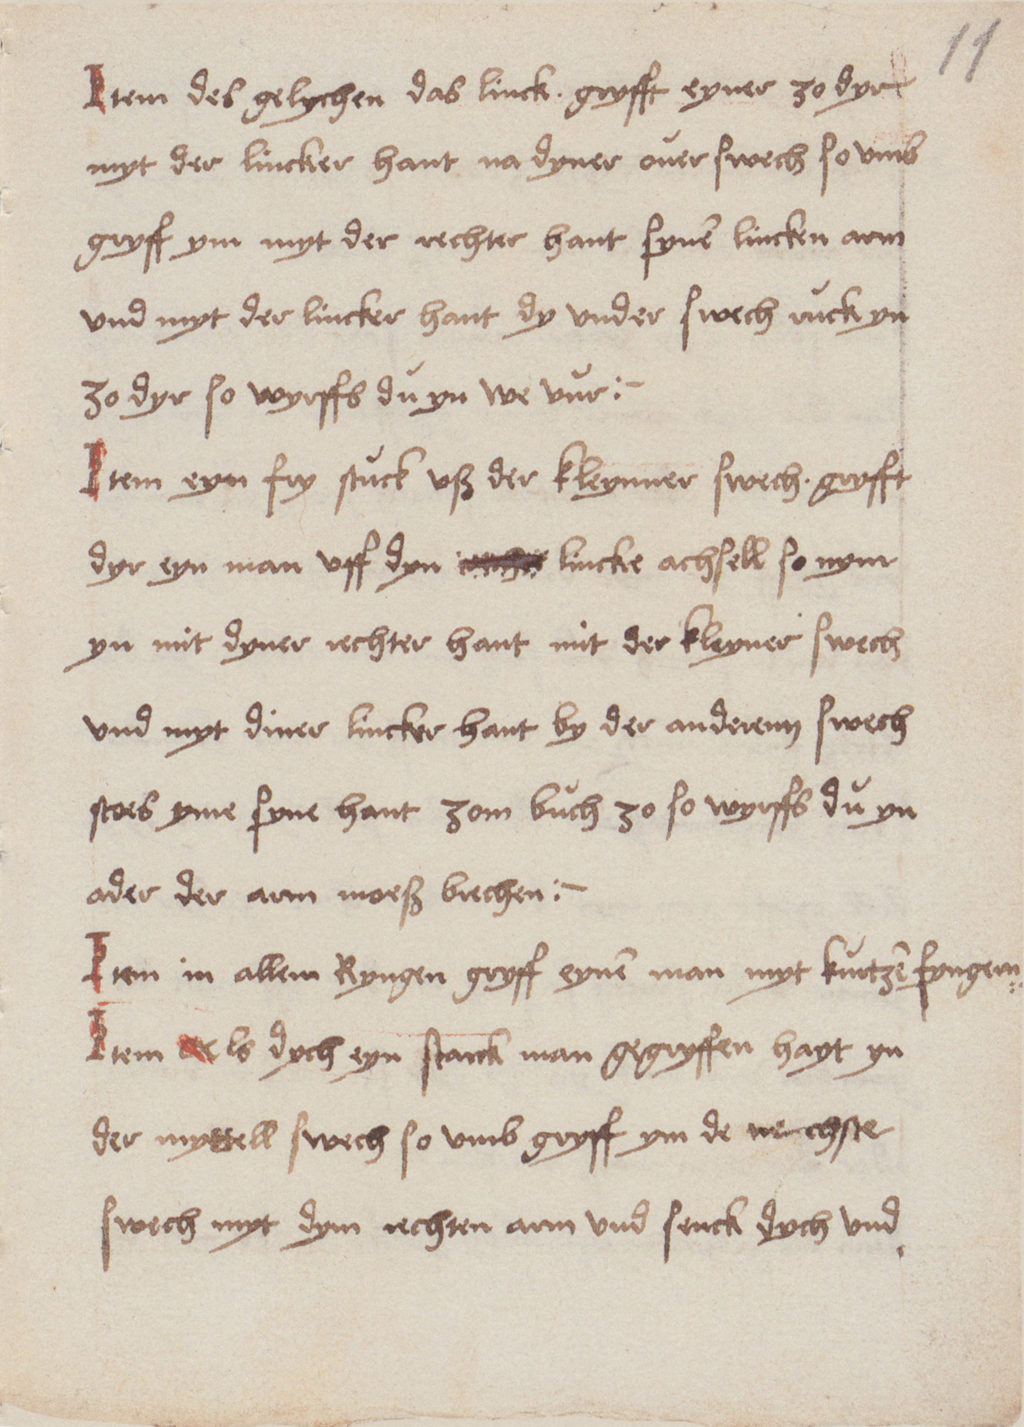 11
Item des gelychen das linck. gryfft eyner zo dyr
myt der lincker hant na dyner ouer swech so vmb
gryff ym myt der rechter hant synē lincken arm
vnd myt der lincker hant dy vnder swech ruck yn
zo dyr so wyrffs du yn we vur :~
Item eyn fry stuck vß der kleynner swech. gryfft
dyr eyn man vff dyn lincke achsell so nym
yn mit dyner rechter hant mit der kleyner swech
vnd myt diner lincker hant by der anderenn swech
stoes yme syne hant zom buch zo so wyrffs du yn
ader der arm moeß brechen :~
Item in allem Ryngen gryff eynē man myt kurtzē fyngern
Item als dych eyn starck man gegryffen hayt yn
der myttell swech so vmb gryff ym de nechste
swech myt dym rechten arm vnd senck dych vnd